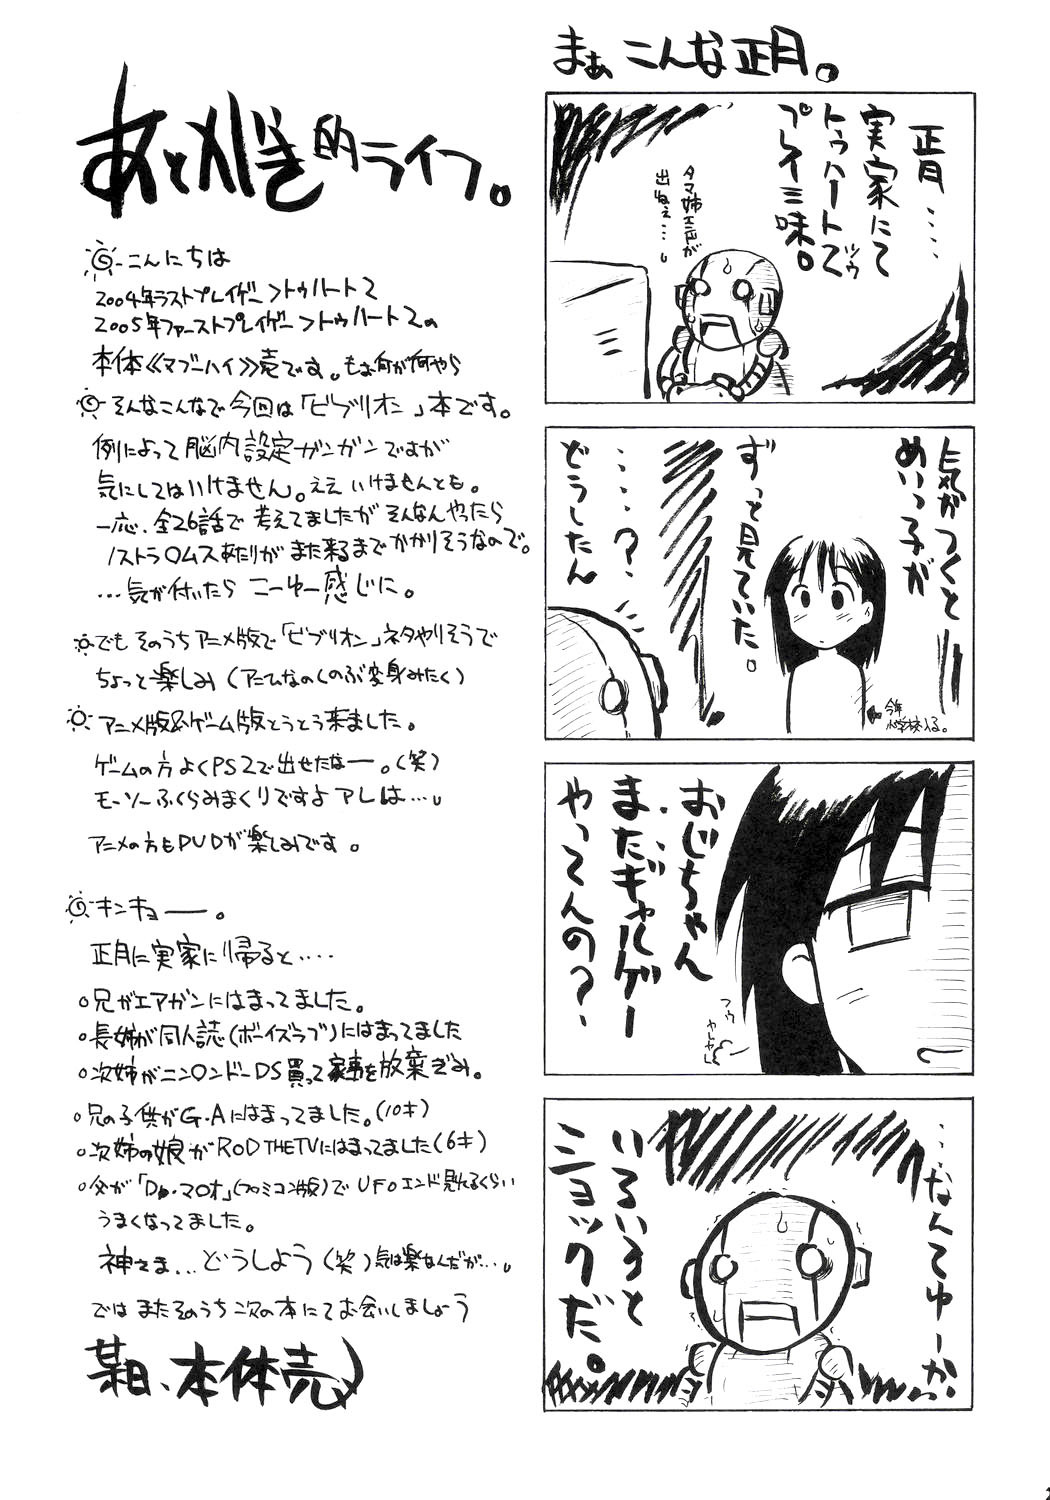 まぁ こんな正月。
正月....
実家にて
トゥハート2
ツウ
プレイ三昧。
タマ姉エロが
出ねぇ...。
気がつくと
めいっ子が
ずっと見ていた。
今年
小学校入る。
....?
どうしたん
おじちゃん
またギャルゲー
やってんの?
フゥ
ヤレヤレ
...なんてゆーか
いろいろと
ショックだ。
あとがき的ライフ。
こんにちは
2004年ラストプレイゲー>トゥハート2
2005年ファーストプレイゲー>トゥハート2の
本体《マブーハイ》売です。もぉ何が何やら
そんなこんなで今回は「ビブリオン」本です。
例によって脳内設定ガンガンですが
気にしてはいけません。ええ いけませんとも。
一応、全26話で考えてましたが そんなんやったら
ノストラ〇ムスあたりが また来るまでかかりそうなので。
...気が付いたら こーゆー感じに。
でも そのうちアニメ版で「ビブリオン」ネタやりそうで
ちょっと楽しみ(アニムなのくのぶ変身みたく)
アニメ版&ゲーム版とうとう来ました。
ゲームの方 よくPS2で出せたなー。(笑)
モーソーふくらみまくりですよ アレは...。
アニメの方もDVDが楽しみです。
キンキョー。
正月に実家に帰ると....
○兄がエアガンにはまってました。
○長姉が同人誌(ボーイズラブ)にはまってました
○次姉がニン〇ンドーDS買って家事を放棄ぎみ。
○兄の子供がG・Aにはまってました。(10才)
○次姉の娘がROD THE TVにはまってました(6才)
○父が「Dr.マ〇オ」(ファミコン版)でUFOエンド見れるくらい
うまくなってました。
神さま...どうしよう(笑)気は楽なんだが...。
では またそのうち次の本にてお会いしましょう
某日、本体売